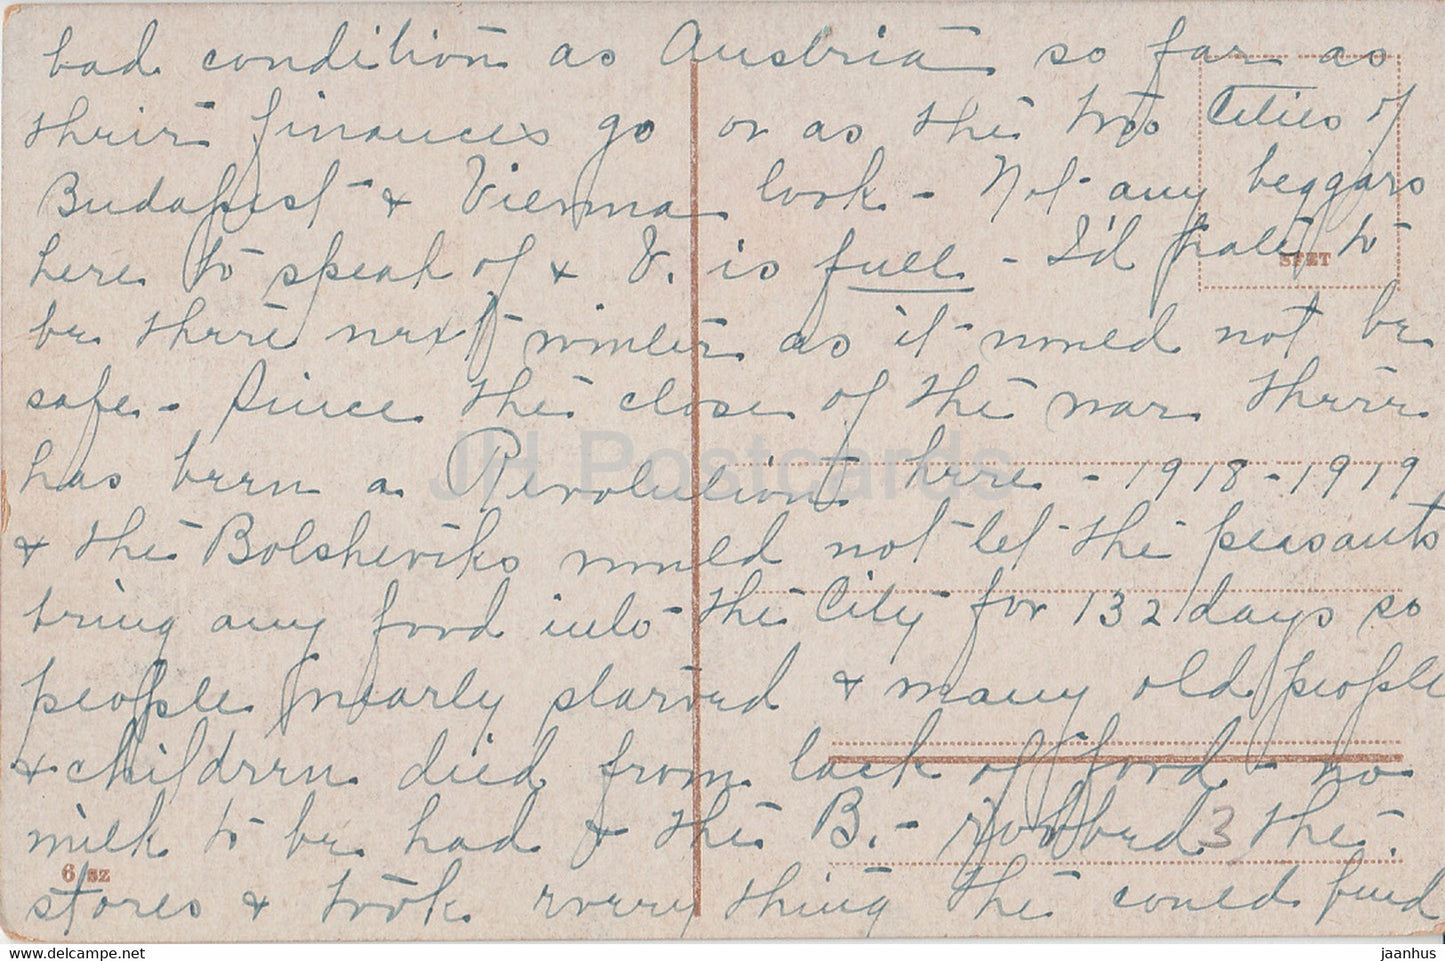 bad condition as Austria so far as
their finances go or as the two Cities of
Budapest & Vienna look - Not any beggars
here to speak of & V. is full - I'd hate to
SFZT
be there next winter as it would not be
safe - Since the close of the war there
has been a Revolution here - 1918-1919
JH Postcards
& the Bolsheviks would not let the peasants
bring any food into the City for 132 days so
people nearly starved & many old people
& children died from lack of food - no
milk to be had & the B. - robbed the
3
6/sz
stores & took every thing the could find
www.delcampe.net
jaanhus